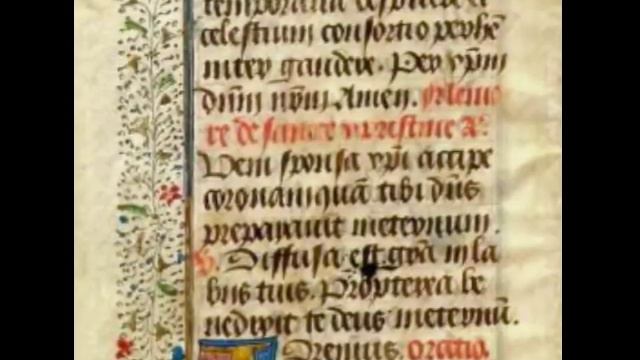 despicere et
celestium consortio perhē
niter gaudere. Per xp̄m
dn̄m nr̄m. Amen. Memo
re de
Veni sponsa xp̄i accipe
coronam quā tibi dn̄s
preparauit in eternum.
V. Diffusa est grā in la
biis tuis. Propterea be
nedixit te deus in eternū.
Oremus. oratio